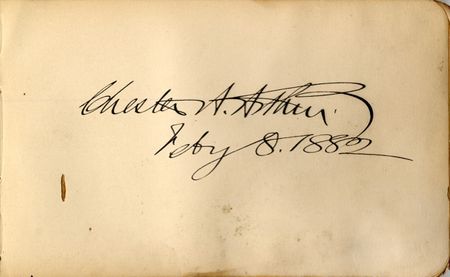 Chester A. Arthur.
Feby 8. 1882